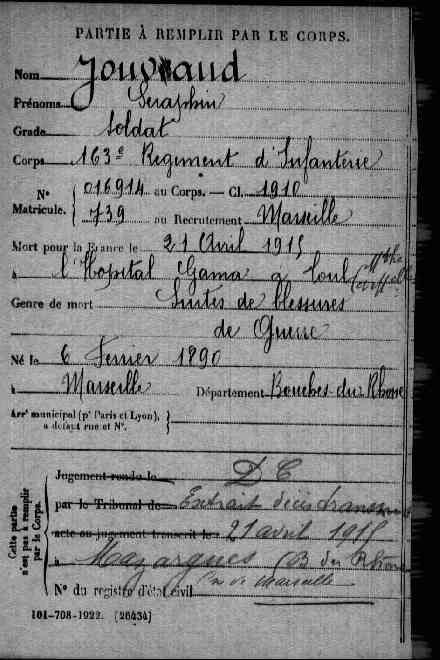 PARTIE À REMPLIR PAR LE CORPS.
Nom Jouvraud
Prénoms Seraphin
Grade Soldat
Corps 163e Regiment d'Infanterie
N° Matricule. { 016914 au Corps. — Cl. 1910
739 au Recrutement Marseille
Mort pour la France le 21 Avril 1915
à l'Hopital Gama à Toul
Genre de mort Suites de blessures
de Guerre
Né le 6 Fevrier 1890
à Marseille Département Bouches-du-Rhone
Arrt municipal (pr Paris et Lyon), à défaut rue et N°. }
Cette partie n'est pas à remplir par le Corps.
Jugement rendu le D C
par le Tribunal de Extrait décès
acte ou jugement transcrit le 21 avril 1915
à Mazargues (B du Rhône
Cne de Marseille
N° du registre d'état civil
101-708-1922. [26434]